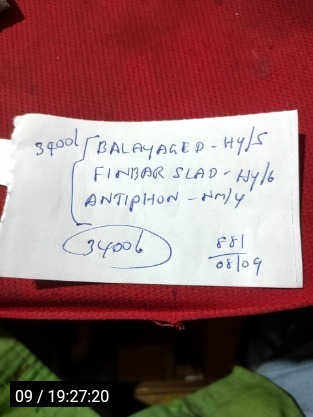 3400L BALAYAGED - HY/5
FINBAR SLAD - HY/6
ANTIPHON - NM/4
3400L
881
08/09
09 / 19:27:20